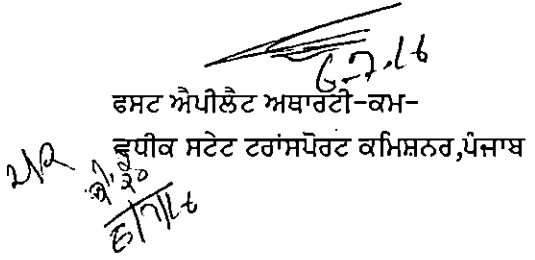 6-7.16
ਫਸਟ ਐਪੀਲੈਟ ਅਥਾਰਟੀ-ਕਮ-
ਵਧੀਕ ਸਟੇਟ ਟਰਾਂਸਪੋਰਟ ਕਮਿਸ਼ਨਰ,ਪੰਜਾਬ